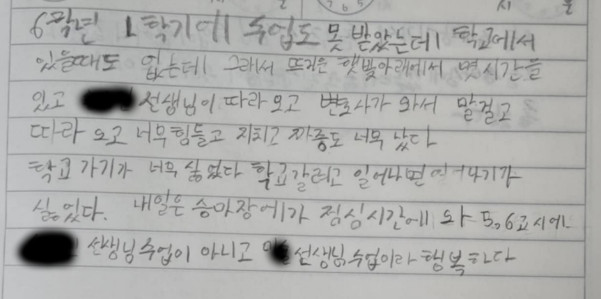 6학년 1학기에 수업도 못 받았는데 학교에서
있을때도 없는데 그래서 뜨거운 햇빛아래에서 몇시간을
있고 선생님이 따라오고 변호사가 와서 말걸고
따라 오고 너무힘들고 지치고 짜증도 너무 났다
학교 가기가 너무 싫었다 학교갈려고 일어나면
싫었다. 내일은 승마장에가 점심시간에 와 5,6교시에
선생님 수업이 아니고 선생님 수업이라 행복하다